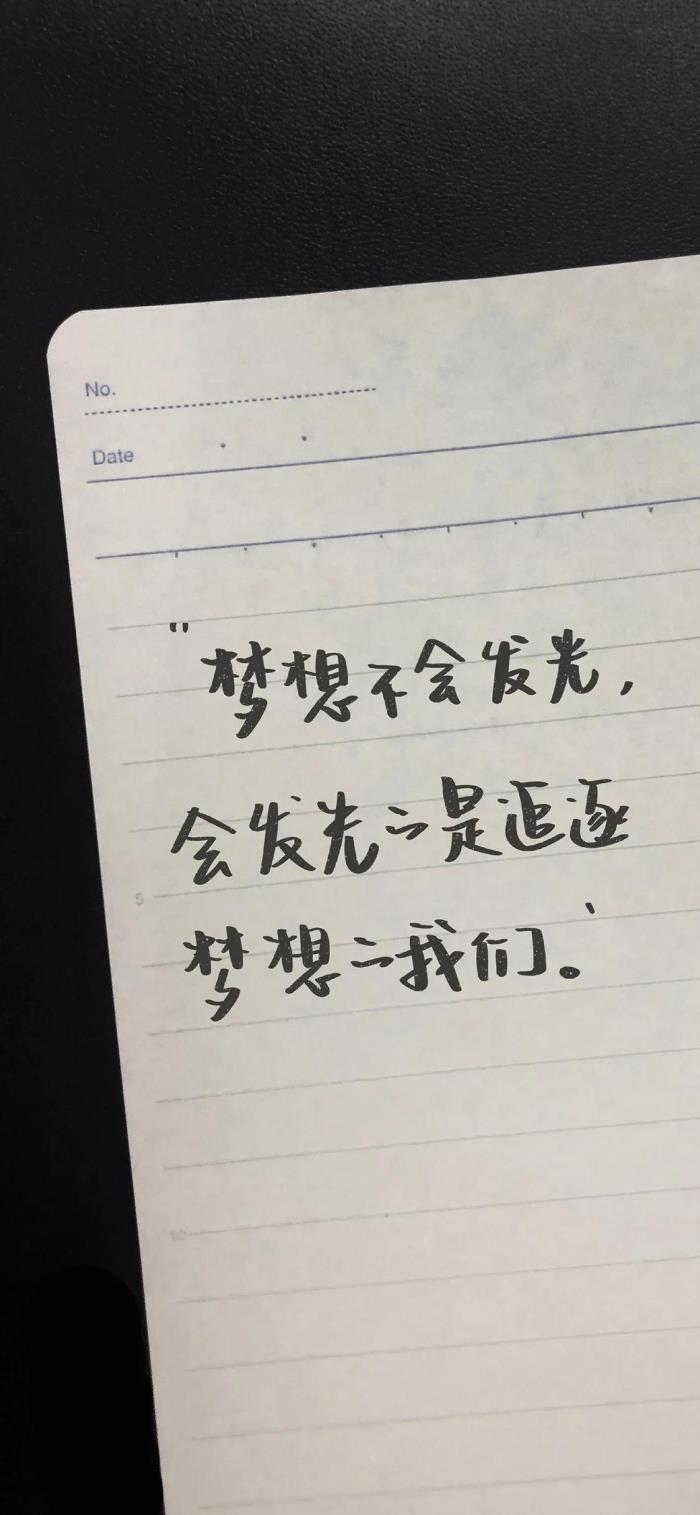 No.
Date
"梦想不会发光，
会发光的是追逐
5
梦想的我们。'
10